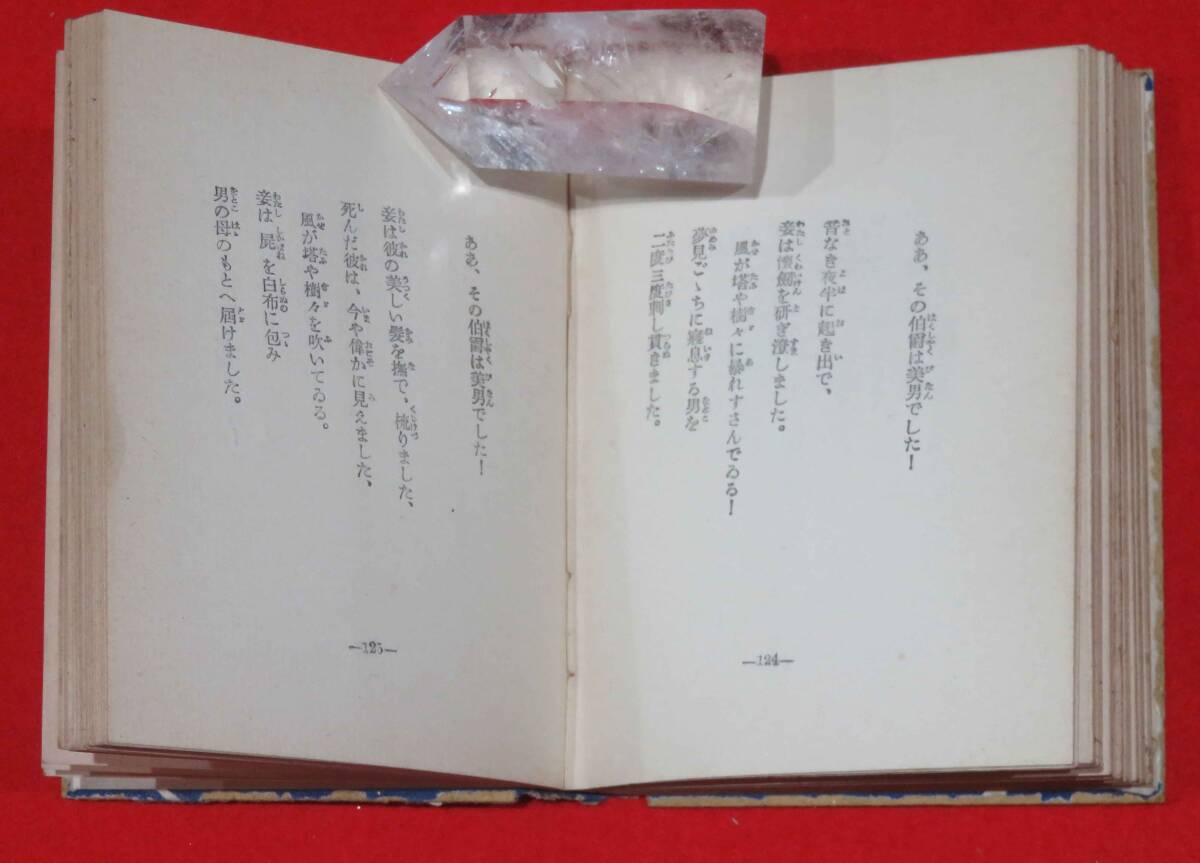 ああ、その伯爵は美男でした！
音なき夜半に起き出で、
妾は懐劔を研ぎ澄しました。
風が塔や樹々に暴れすさんでゐる！
夢見ごゝちに寝息する男を
二度三度刺し貫きました。
—124—
ああ、その伯爵は美男でした！
妾は彼の美しい髪を撫で、梳りました、
死んだ彼は、今や偉かに見えました、
風が塔や樹々を吹いてゐる。
妾は屍を白布に包み
男の母のもとへ届けました。
—125—